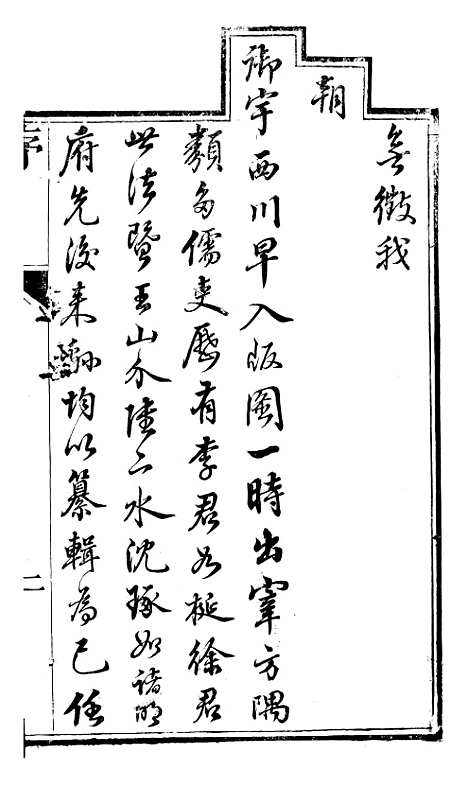 無徵我
朝
御宇西川早入版圖一時出宰方隅
類多儒吏歷有李君如梃徐君
世法暨王山介陸二水沈琢如諸明
府先後來均以纂輯為己任
序
二